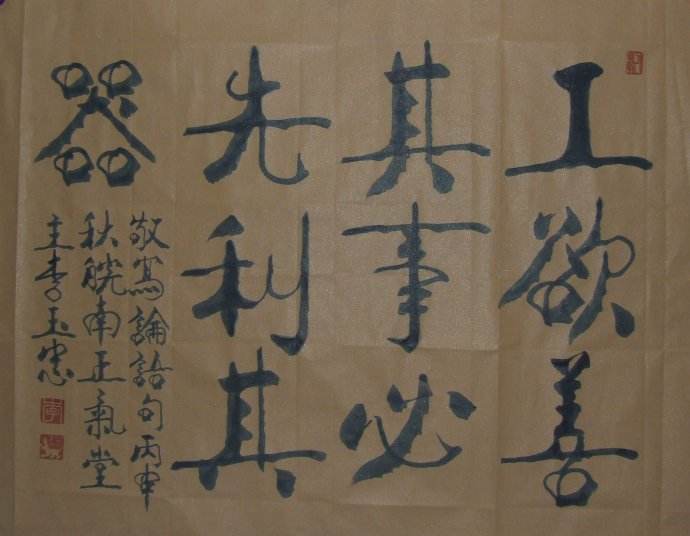 工欲善
其事必
先利其
器
敬寫論語句丙申
秋皖南正氣堂
主李玉忠